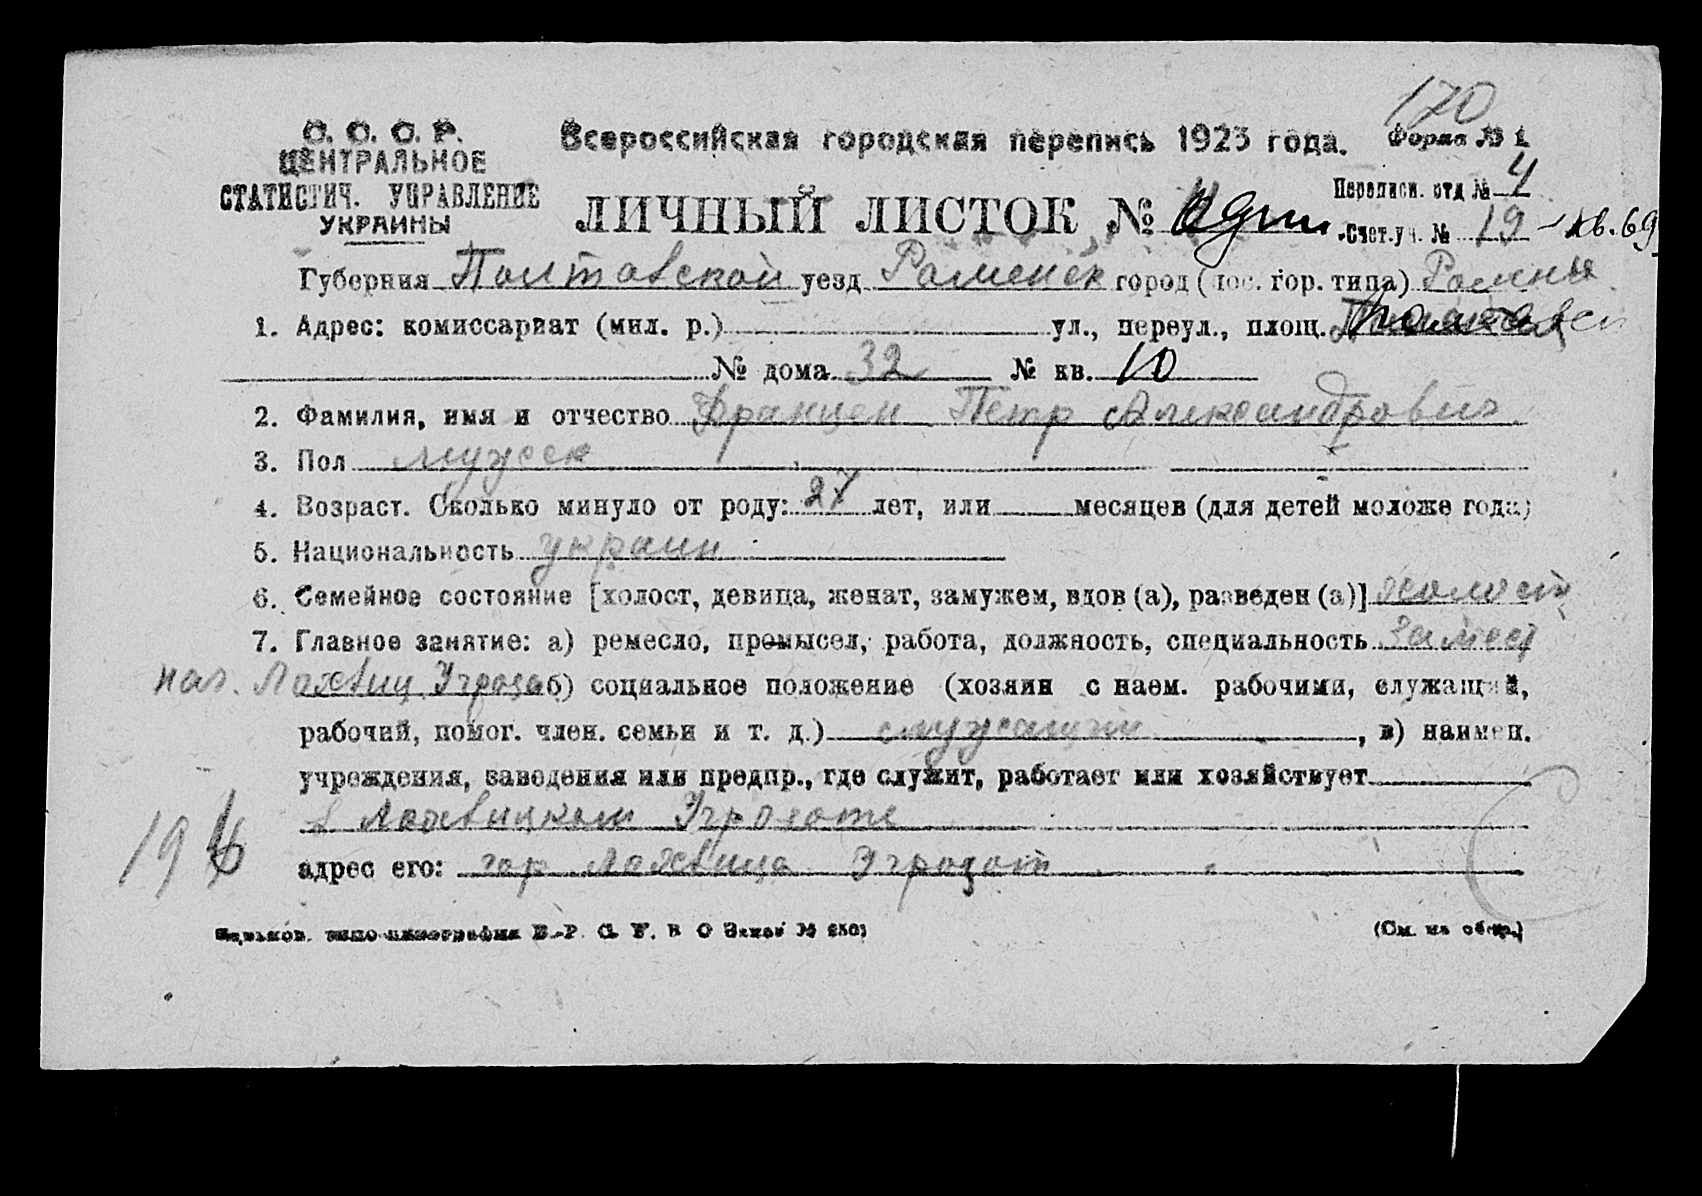 170
С. С. С. Р.
ЦЕНТРАЛЬНОЕ
СТАТИСТИЧ. УПРАВЛЕНИЕ
УКРАИНЫ
Всероссийская городская перепись 1923 года. Форма № 1
Переписн. отд № 4
ЛИЧНЫЙ ЛИСТОК № Счет.уч. № 19 - кв. 69
Губерния Полтавской уезд Роменск город (пос. гор. типа) Ромны
1. Адрес: комиссариат (мил. р.) ул., переул., площ.
№ дома 32 № кв. 10
2. Фамилия, имя и отчество Францен Петр Александрович
3. Пол мужск
4. Возраст. Сколько минуло от роду: 27 лет, или месяцев (для детей моложе года)
5. Национальность украин
6. Семейное состояние [холост, девица, женат, замужем, вдов (а), разведен (а)] холост
7. Главное занятие: а) ремесло, промысел, работа, должность, специальность Замест
нач. Лохвиц. б) социальное положение (хозяин с наем. рабочими, служащий,
рабочий, помог. член. семьи и т. д.) служащий, в) наимен.
учреждения, заведения или предпр., где служит, работает или хозяйствует
в Лохвицком
196
адрес его: гор Лохвица
(См. на обор.)